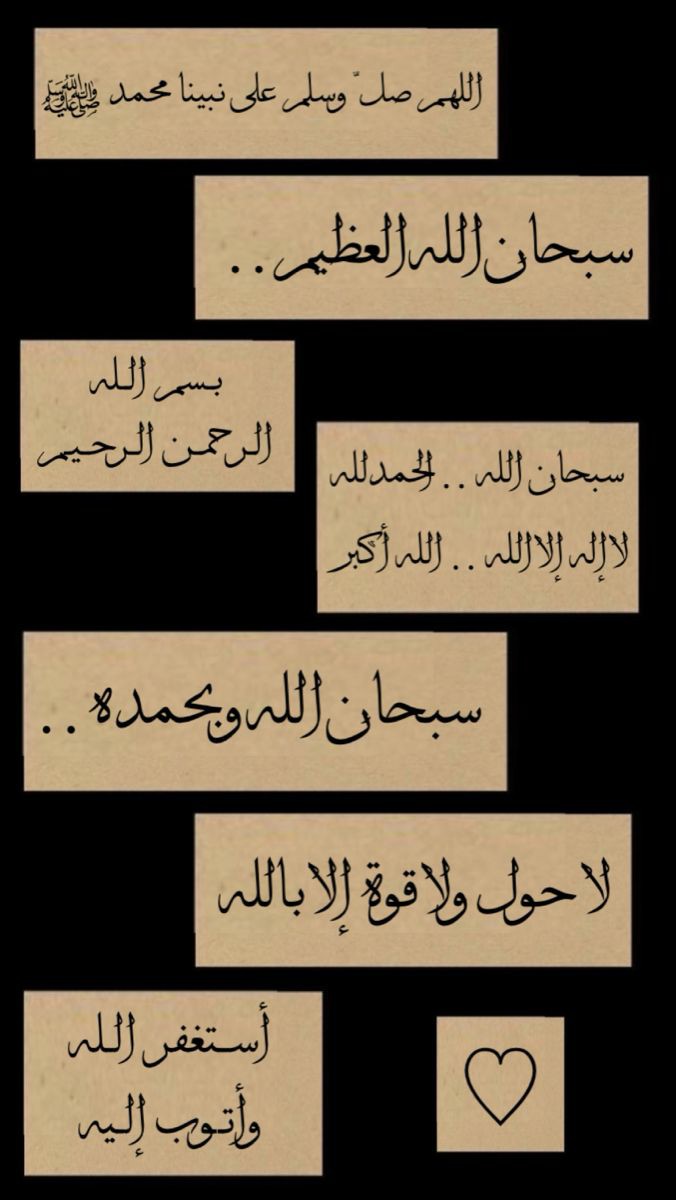 اللهم صلّ وسلم على نبينا محمد ﷺ
سبحان الله العظيم..
بسم الله
الرحمن الرحيم
سبحان الله .. الحمدلله
لا إله إلا الله .. الله أكبر
سبحان الله وبحمده ..
لا حول ولا قوة إلا بالله
أستغفر الله
وأتوب إليه